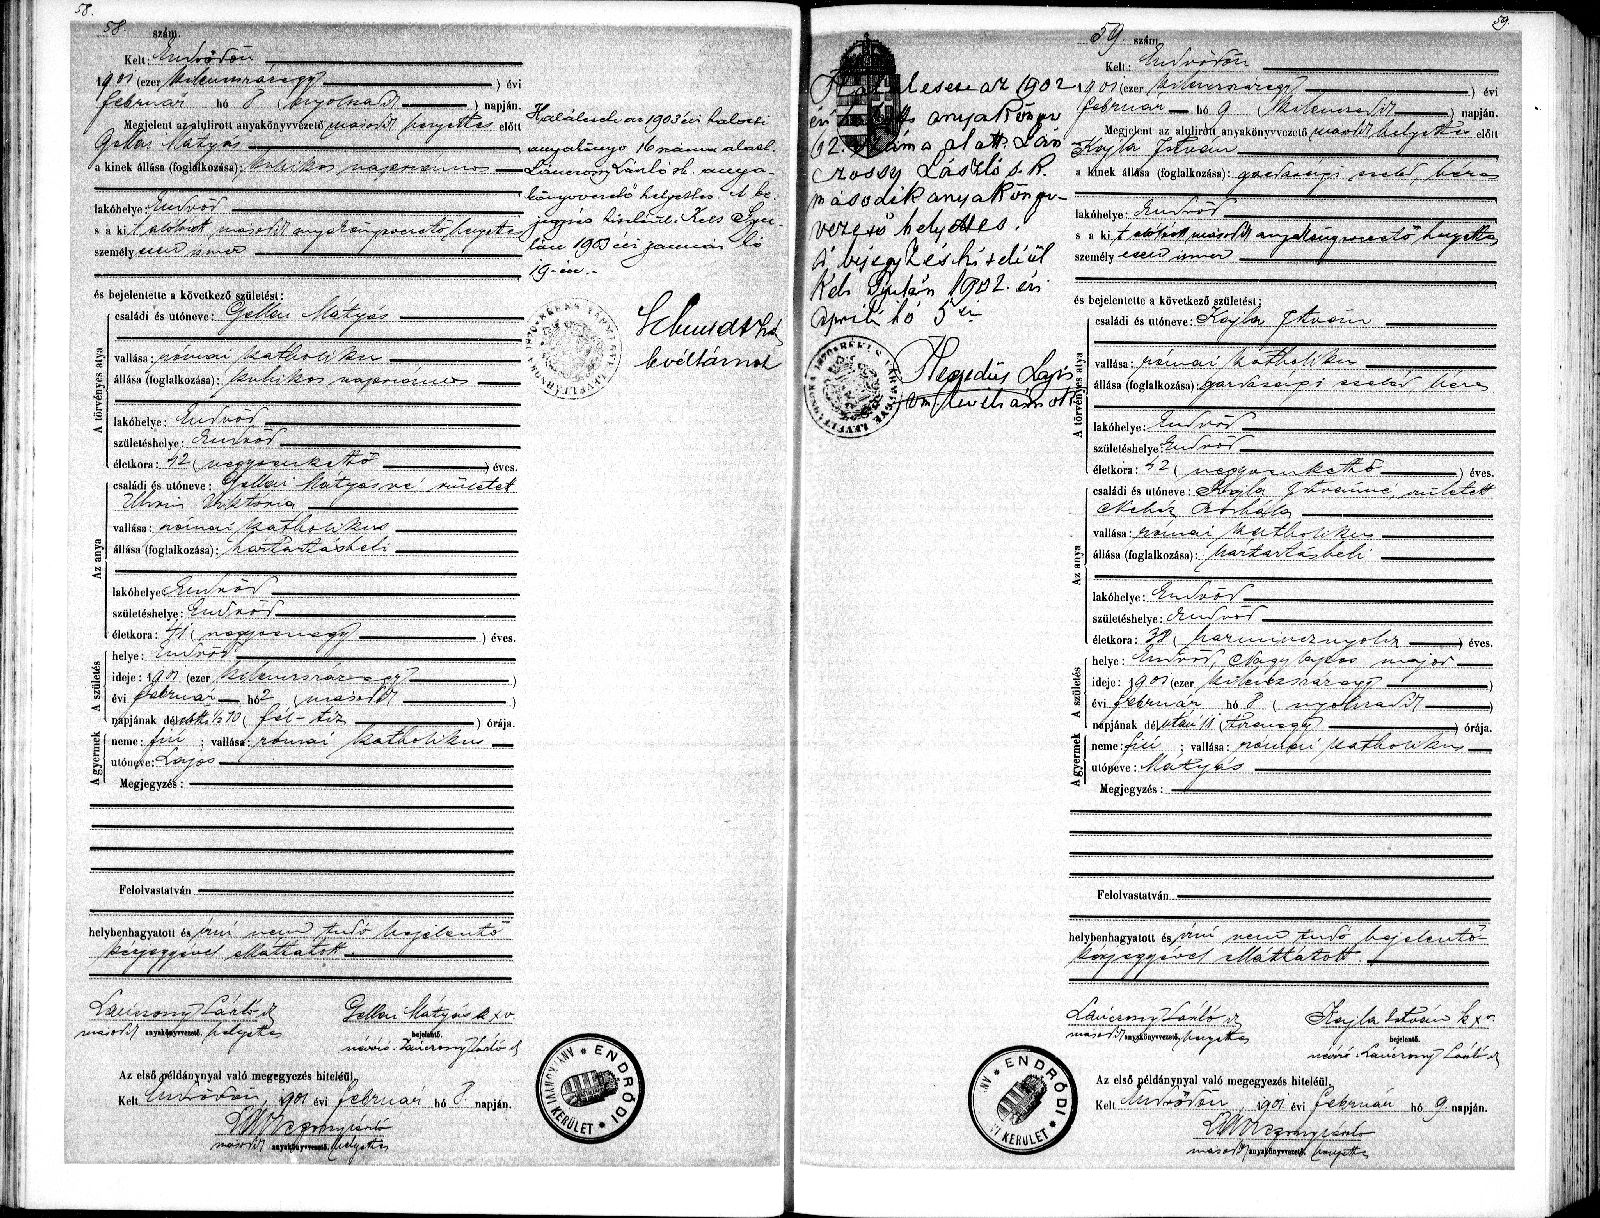 58.
58 szám.
Kelt: Endrődön
1901 (ezer kilencszázegy) évi
február hó 8 (nyolcadik) napján.
Megjelent az alulirott anyakönyvvezető második helyettes előtt
Gellai Mátyás
a kinek állása (foglalkozása): kubikos napszámos
lakóhelye: Endrőd
s a kit alólirott második anyakönyvvezető helyettes
személyesen ismer
és bejelentette a következő születést:
A törvényes atya
családi és utóneve: Gellai Mátyás
vallása: római katholikus
állása (foglalkozása): kubikos napszámos
lakóhelye: Endrőd
születéshelye: Endrőd
életkora: 42 (negyvenkettő) éves.
Az anya
családi és utóneve: Gellai Mátyásné született
Uhrin Viktória
vallása: római katholikus
állása (foglalkozása): háztartásbeli
lakóhelye: Endrőd
születéshelye: Endrőd
életkora: 41 (negyvenegy) éves.
A születés
helye: Endrőd
ideje: 1901 (ezer kilencszázegy)
évi február hó 2 (második)
napjának délelőtti ½10 (fél-tíz) órája.
A gyermek
neme: fiú; vallása: római katholikus
utóneve: Lajos
Megjegyzés:
Felolvastatván
helybenhagyatott és írni nem tudó bejelentő
kézjegyével elláttatott.
Láncrony László
második anyakönyvvezető helyettes
Gellai Mátyás k x v.
bejelentő.
névíró: Láncrony László
Az első példánynyal való megegyezés hiteléül.
Kelt Endrődön, 1901 évi február hó 8. napján.
második anyakönyvvezető helyettes
ENDRŐDI ANYAKÖNYVI KERÜLET
Haláleset az 1903 évi halotti
anyakönyv 16 száma alatt.
László sk. anya-
könyvvezető helyettes. A be-
jegyzés hiteléül. Kelt Gyu-
lán 1903 évi január hó
19-én.
BÉKÉS VÁRMEGYE LEVÉLTÁRNOKA 1870
levéltárnok
59.
59. szám.
Kelt: Endrődön
1901 (ezer kilencszázegy) évi
február hó 9 (kilencedik) napján.
Megjelent az alulirott anyakönyvvezető második helyettes előtt
Kajla István
a kinek állása (foglalkozása): gazdasági cseléd, béres
lakóhelye: Endrőd
s a kit alólirott második anyakönyvvezető helyettes
személyesen ismer
és bejelentette a következő születést:
A törvényes atya
családi és utóneve: Kajla István
vallása: római katholikus
állása (foglalkozása): gazdasági cseléd, béres
lakóhelye: Endrőd
születéshelye: Endrőd
életkora: 42 (negyvenkettő) éves.
Az anya
családi és utóneve: Kajla Istvánné, született
Nehéz Borbála
vallása: római katholikus
állása (foglalkozása): háztartásbeli
lakóhelye: Endrőd
születéshelye: Endrőd
életkora: 38 (harmincznyolcz) éves.
A születés
helye: Endrőd, Nagylapos major
ideje: 1901 (ezer kilenczszázegy)
évi február hó 8 (nyolcadik)
napjának délutáni 11 (tizenegy) órája.
A gyermek
neme: fiú; vallása: római katholikus
utóneve: Mátyás
Megjegyzés:
Felolvastatván
helybenhagyatott és írni nem tudó bejelentő
kézjegyével elláttatott.
Láncrony László
második anyakönyvvezető helyettes
Kajla István k x v.
bejelentő.
névíró: Láncrony László
Az első példánynyal való megegyezés hiteléül.
Kelt Endrődön, 1901 évi február hó 9 napján.
második anyakönyvvezető helyettes
ENDRŐDI ANYAKÖNYVI KERÜLET
Haláleset az 1902
évi anyakönyv
62. száma alatt. Lán
László s. k.
második anyakönyv-
vezető helyettes.
A bejegyzés hiteléül
Kelt Gyulán 1902. évi
április hó 5-én
BÉKÉS VÁRMEGYE LEVÉLTÁRNOKA 1870
Hegedűs Lajos
vm. levéltárnok